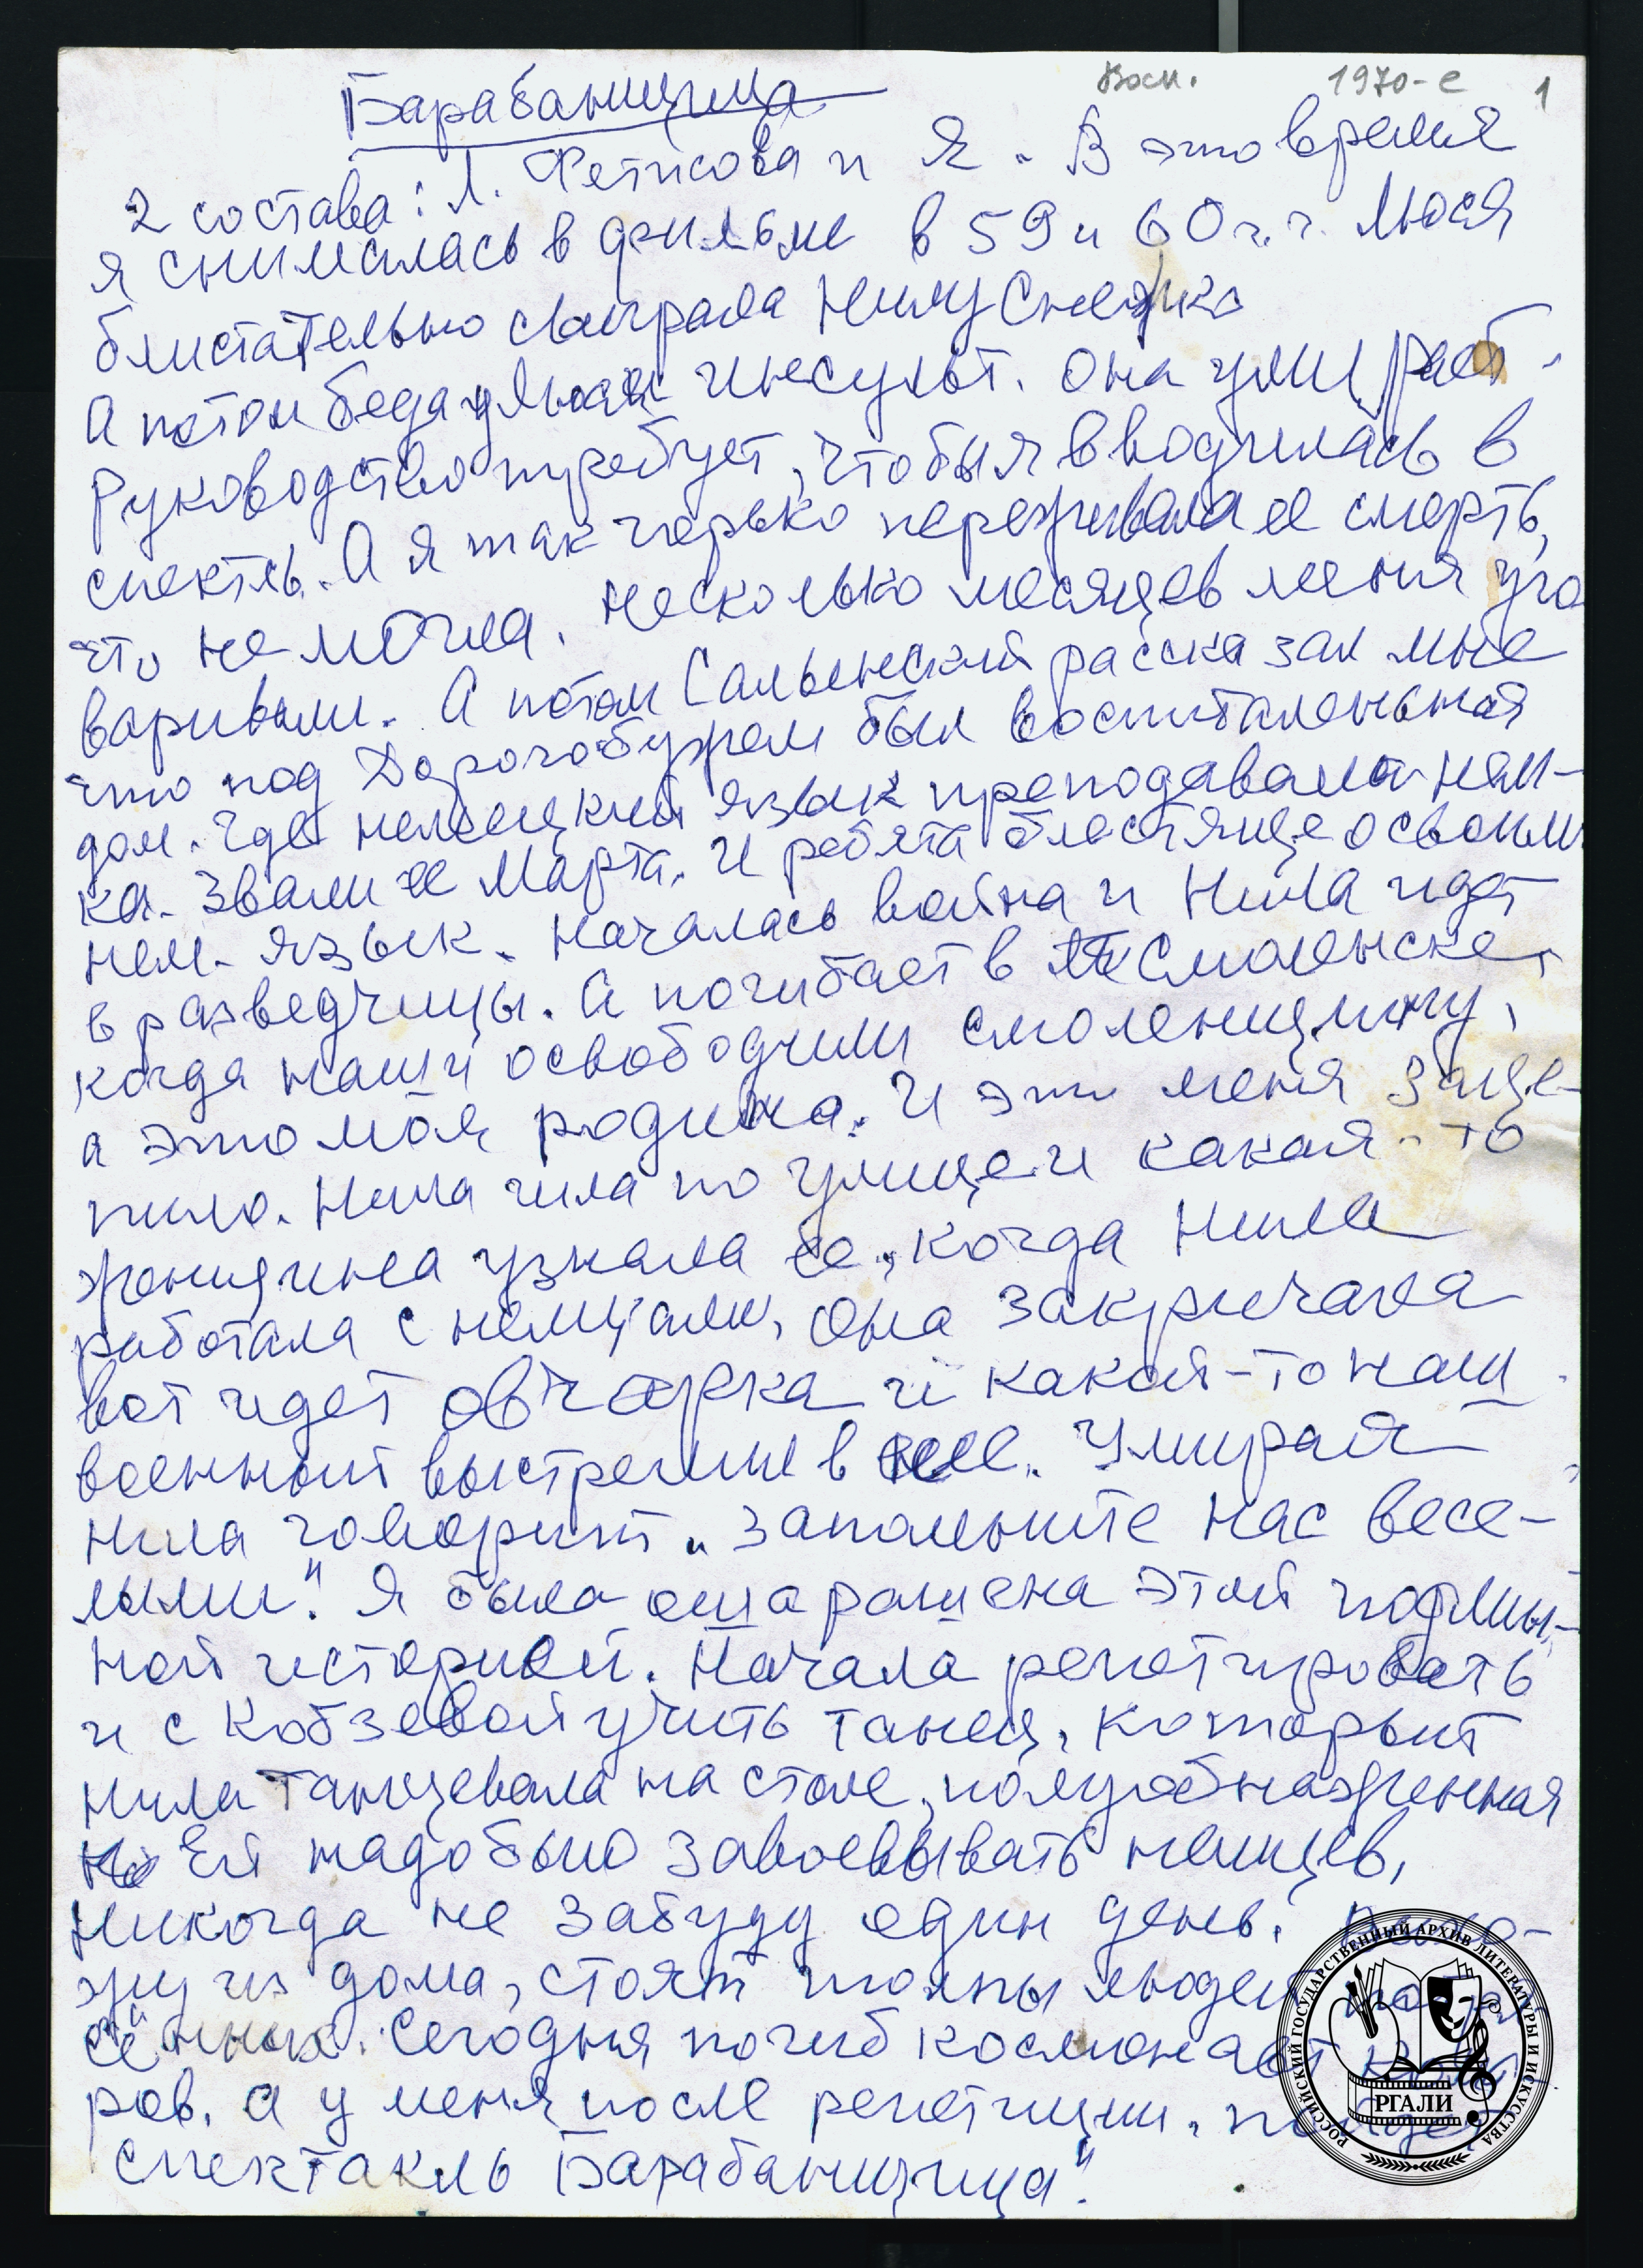 Восп. 1970-е 1
Барабанщица
2 состава: Л. Фетисова и Я. В это время
я снималась в фильме в 59 и 60 г.г. Люся
блистательно сыграла Нилу Снежко
А потом беда у Люси инсульт. Она умирает.
Руководство требует, чтобы я вводилась в
спектль. А я так горько переживала ее смерть,
что не могла. Несколько месяцев меня уго
варивали. А потом Салынский рассказал мне
что под Дорогобужем был воспиталеньная
дом. Где немецкий язык преподавала нем-
ка. Звали ее Марта. И ребята блестяще освоили
нем. язык. Началась война и Нила идет
в разведчицы. А погибает в Смоленске,
когда наши освободили смоленщину,
а это моя родина. И это меня заце-
пило. Нила шла по улице и какая-то
женщина узнала ее, когда Нила
работала с немцами, она закричала
вот идет овчарка и какой-то наш
военный выстрелил в нее. Умирая
Нила говорит „запомните нас весе-
лыми". Я была ошарашена этой подлин-
ной историей. Начала репетировать
и с Кобзевой учить танец, который
Нила танцевала на столе, полуобнаженная
Ей надо было завоевывать немцев,
Никогда не забуду один день. Выхо-
жу из дома, стоят толпы людей
Сегодня погиб космонавт Кома
ров. А у меня после репетиции,
спектакль Барабанщица".
РОССИЙСКИЙ ГОСУДАРСТВЕННЫЙ АРХИВ ЛИТЕРАТУРЫ И ИСКУССТВА
РГАЛИ